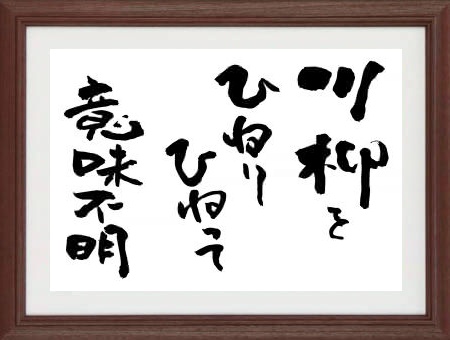 川柳を
ひねり
ひねって
意味不明